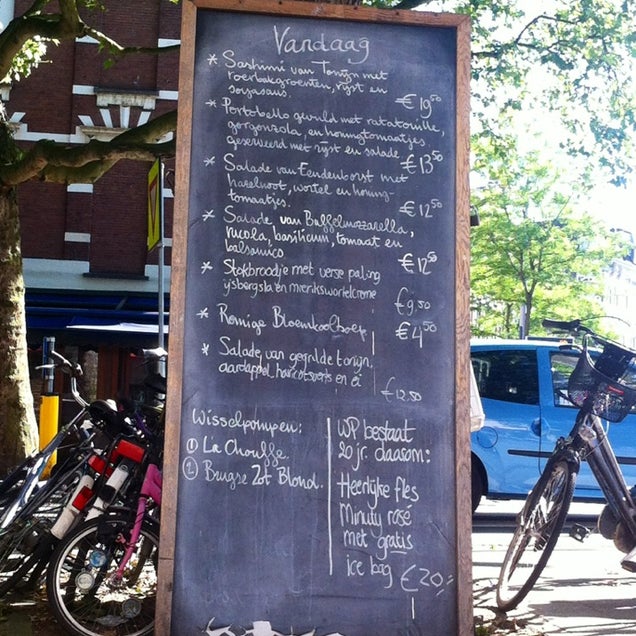 Vandaag
* Sashimi van Tonijn met
roerbakgroenten, rijst en
sojasaus. € 19,50
* Portobello gevuld met ratatouille,
gorgonzola, en honingtomaatjes,
geserveerd met rijst en salade € 13,50
* Salade van Eendenborst met
hazelnoot, wortel en honing-
tomaatjes. € 12,50
* Salade van Buffelmozzarella,
rucola, basilicum, tomaat en
balsamico € 12,50
* Stokbroodje met verse paling
ijsbergsla en mierikswortelcrème
€ 9,50
* Romige Bloemkoolsoep € 4,50
* Salade van gegrilde tonijn,
aardappel, haricots verts en ei
€ 12,50
Wisselpompen:
① La Chouffe.
② Brugse Zot Blond.
WP bestaat
20 jr. daarom:
Heerlijke fles
Minuty rosé
met gratis
ice bag €20,-